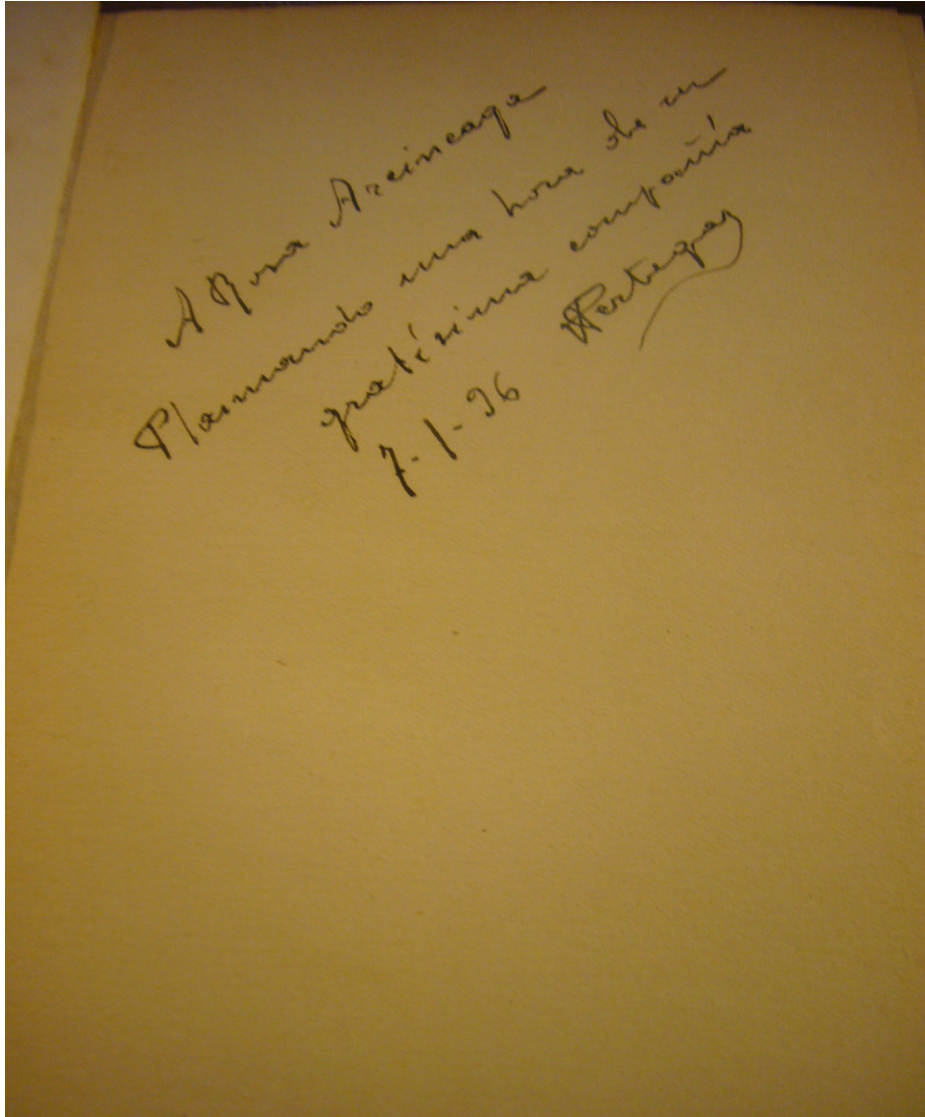 A Rosa Arciniega
Plasmando una hora de su
gratísima compañía
7-1-36 Pertegaz